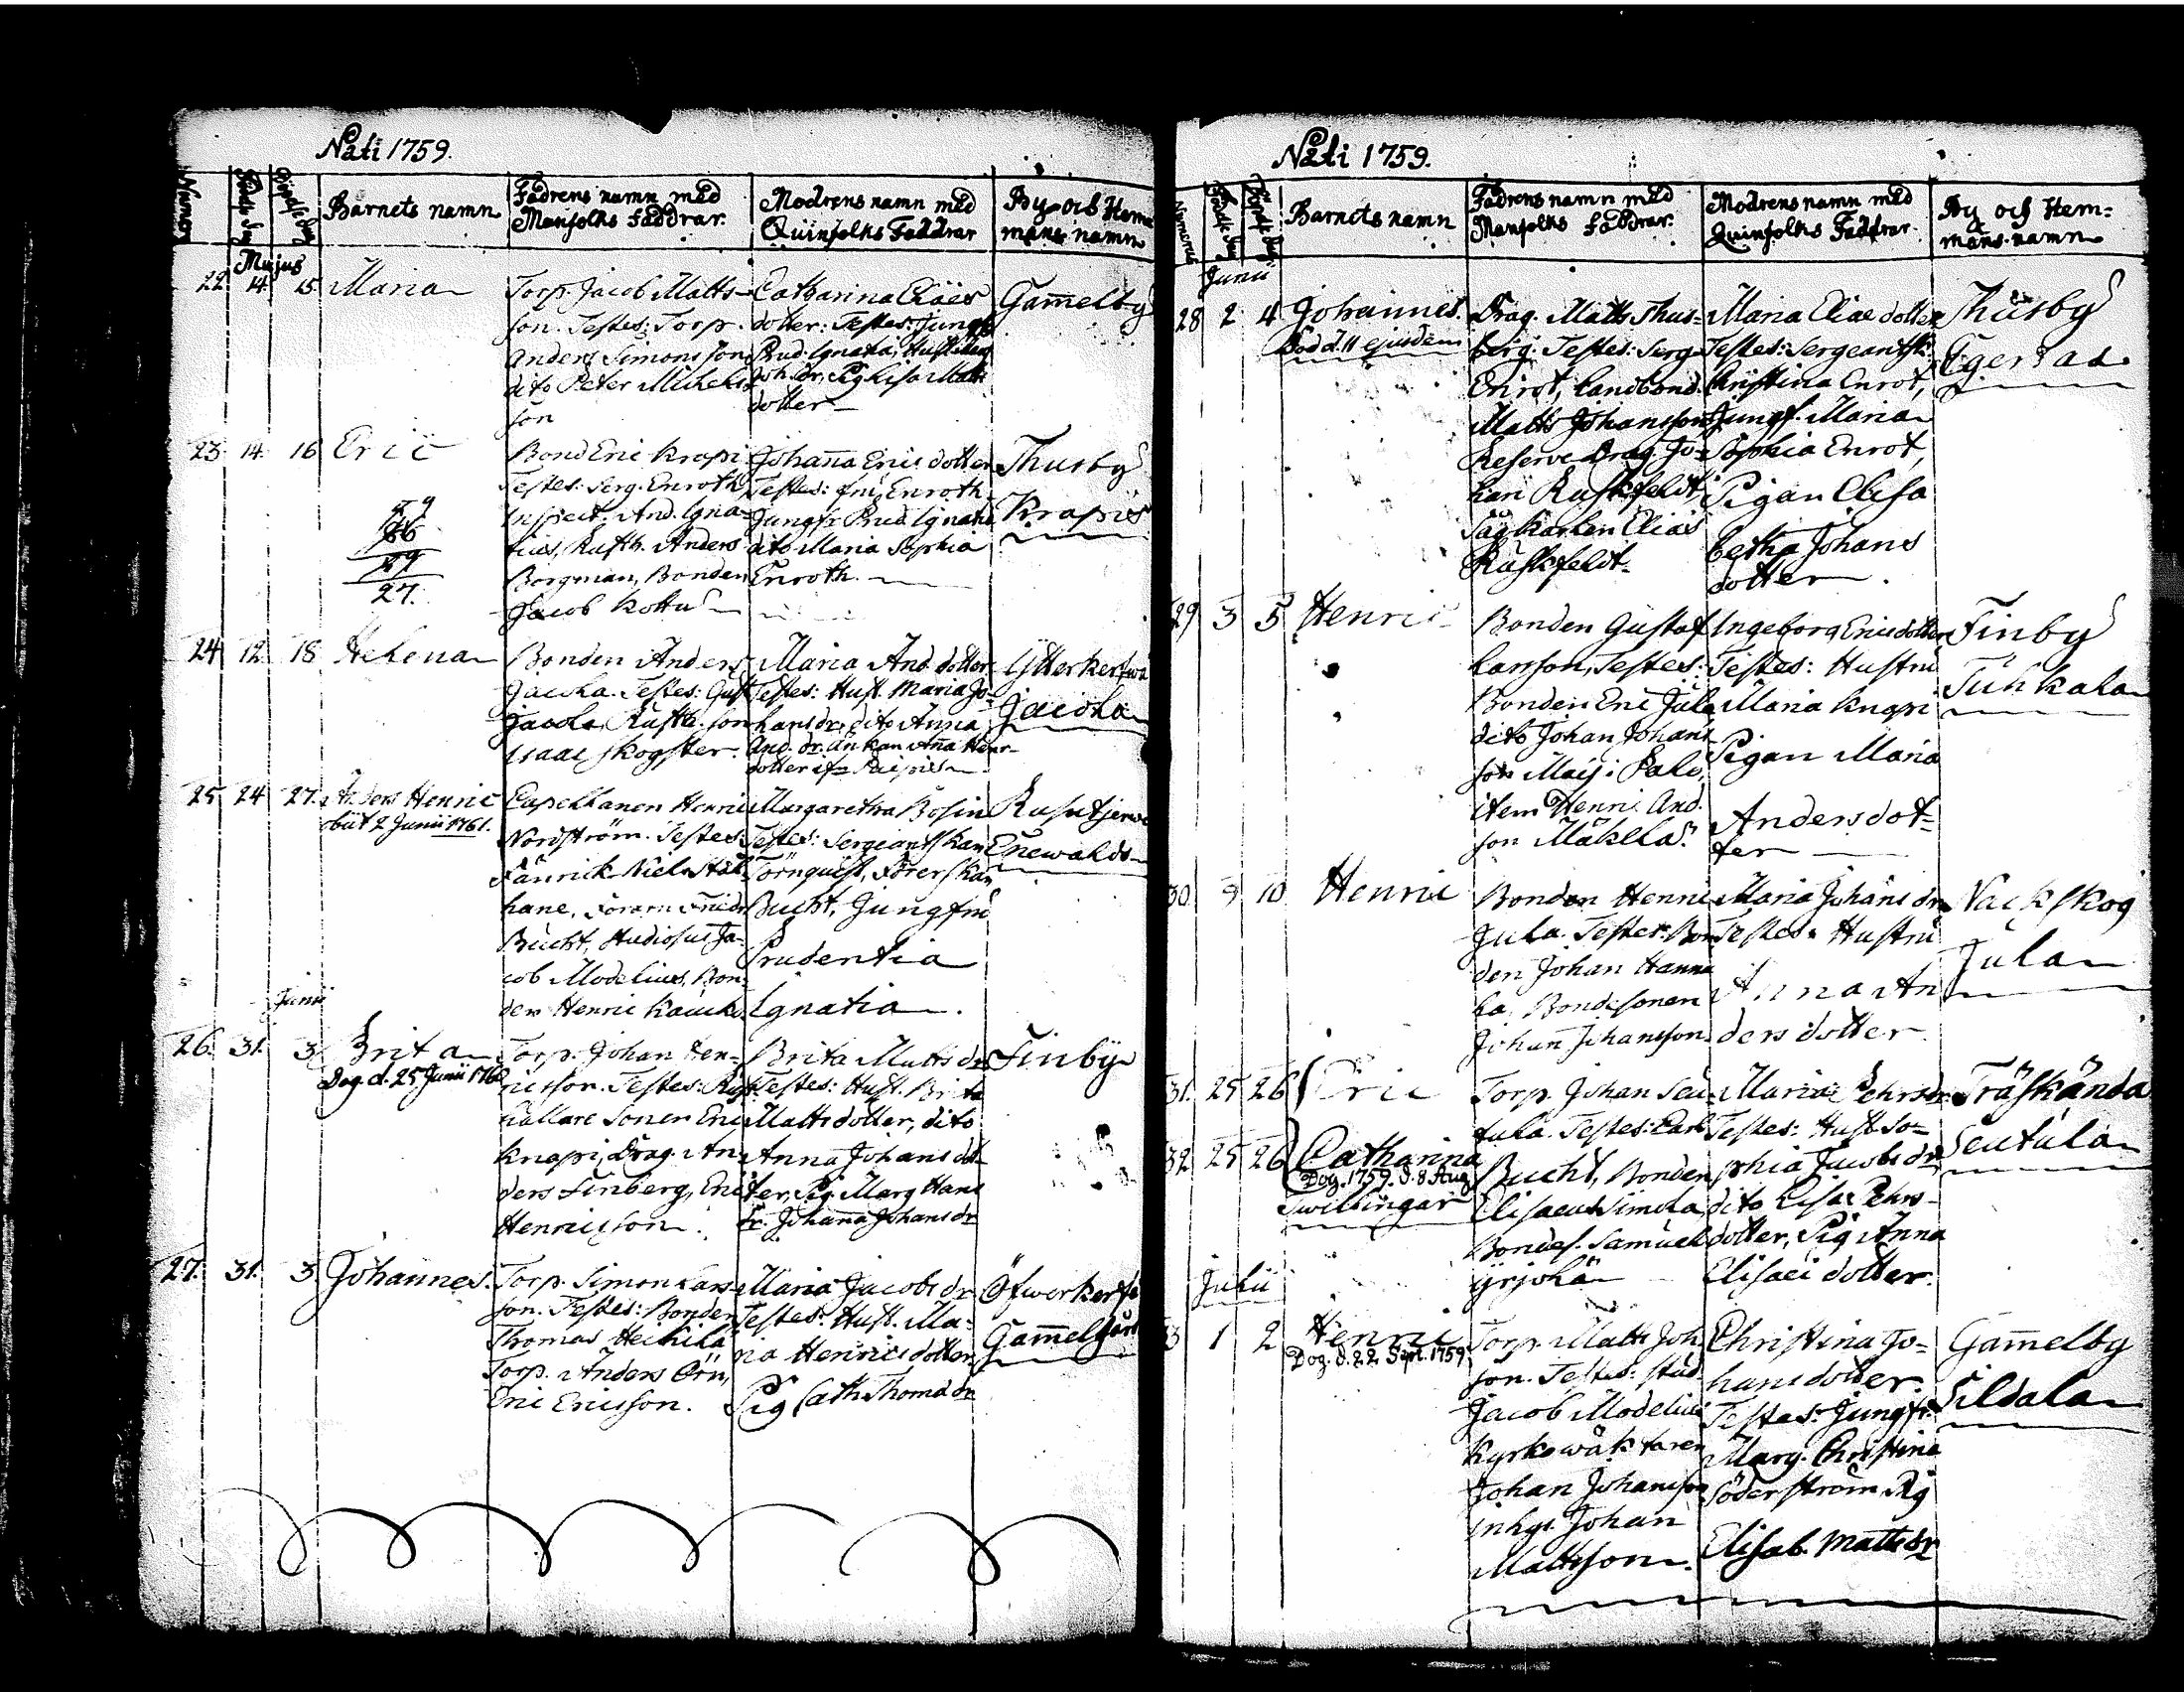 Nati 1759.
Numer
Födde dag
Döptde dag
Barnets namn
Fadrens namn med
Manfolks faddrar.
Modrens namn med
Quinfolks Faddrar
By och Hem-
mans namn
Majus
22 14 15 Maria
Torp. Jacob Matts-
son. Testes: Torp.
Anders Simonsson
dito Peter Michels
son
Catharina Eliæ
dotter: Testes: Jungf
Prud. Ignatia, Hust.
Joh. dr, Pig Lisa Matts
dotter
Gamelby
23. 14. 16 Eric
59
86
59
27.
Bond Eric Krapi
Testes: Serg. Enroth
Inspect. And. Igna-
tius, Rusth. Anders
Borgman, Bonden
Jacob Kottu
Johana Erics dotter
Testes: fru Enroth
Jungfr Prud. Ignatia
dito Maria Sophia
Enroth.
Thusby
Krapis
24 12 18 Helena
Bonden Anders
Jacola. Testes: Gust
Jacola, Rusth. son
Isaac Skogster.
Maria And. dotter
Testes: Hust. Maria Jo-
hans dr, dito Anna
And. dr. änkan Ana Henr-
dotter if Paipis
Ytterkerfwa
Jacola
25 24 27. Anders Henric
obiit 2 Junii 1761.
Capellanen Henric
Nordström. Testes:
Fänrick Niels Stål-
hane, Förarn Friedr
Bucht, Studiosus Ja-
cob Modelius, Bon-
den Henric Kaucko
Margaretha Rosin
Testes: Sergeantskan
Törnquist, Förerskan
Bucht, Jungfru
Prudentia
Ignatia.
Rusutjerwi
Enewalds
Junii
26. 31. 3 Brita
Dog. d. 25 Junii 176
Torp. Johan Hen-
ricsson. Testes: Rust
hållare Sonen Eric
Knapi, Drag. An-
ders Finberg, Eric
Henricsson.
Brita Matts dr
Testes: Hust. Brita
Matts dotter, dito
Anna Johans dot-
ter, Pig. Marg Hans
dr. Johana Johans dr
Finby
27. 31. 3 Johannes.
Torp. Simon Lars-
son. Testes: Bonden
Thomas Heickilä
Torp. Anders Örn,
Eric Ericsson.
Maria Jacobs dr
Testes: Hust. Ma-
ria Henrics dotter
Pig Cath. Thomæ dr
Öfwerkerf
Gamelgård
Nati 1759.
Numerus
Födde dag
Döptde dag
Barnets namn
Fadrens namn med
Manfolks faddrar.
Modrens namn med
Quinfolks Faddrar.
By och Hem-
mans namn
Junii
28 2 4 Johannes.
Död d. 11 ejusdem
Drag. Matts Thus-
berg. Testes: Serg.
Enrot, Landbond.
Matts Johansson
Reserve Drag. Jo-
han Ruskfeldt
Sågkarlen Elias
Ruskfeldt.
Maria Eliæ dotter
Testes: Sergeantsk:
Christina Enrot,
Jungf. Maria
Sophia Enrot,
Pigan Elisa
betha Johans
dotter.
Thusby
29 3 5 Henric
Bonden Gustaf
Larsson, Testes:
Bonden Eric Jula
dito Johan Johans
son Maisi Palo,
item Henric And.
son Mäkelä.
Ingeborg Erics dotter
Testes: Hustru
Maria Knapi
Pigan Maria
Andersdot-
ter
Finby
Tuhkala
30 9 10 Henric
Bonden Henric
Jula. Testes: Bon
den Johan Hanna
la, Bondesonen
Johan Johansson
Maria Johans dr.
Testes: Hustru
Anna An
ders dotter.
Nackskog
Jula
31. 25 26 Eric
32 25 26 Catharina
Dog. 1759. d. 8 Aug
Twillingar
Torp. Johan Seu-
tula. Testes: Carl
Bucht, Bonden
Elisaeus Simola
Bondes. Samuel
Yrjölä
Maria Pehrs dr.
Testes: Hust. So-
phia Jacobs dr
dito Lisa Pehrs-
dotter, Pig Anna
Elisæi dotter.
Träskända
Seutula
Julii
3 1 2 Henric
Dog. d. 22 Sept. 1759
Torp. Matts Joh.
son. Testes: Stud.
Jacob Modelius
Kyrkowäktaren
Johan Johansson
Inhys. Johan
Mattsson.
Christina Jo-
hans dotter.
Testes: Jungfr.
Marg. Christina
Söderström Pig
Elisab. Matts dr
Gamelby
Sildala